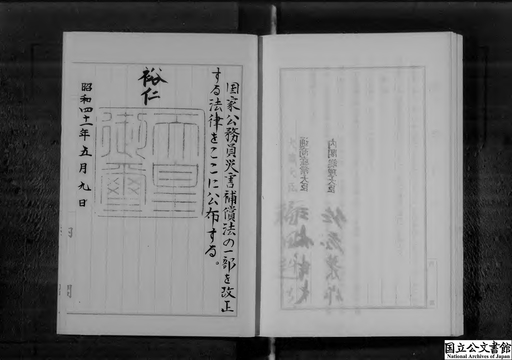 国家公務員災害補償法の一部を改正
する法律をここに公布する。
裕仁
天皇
御璽
昭和四十一年五月九日
内閣総理大臣
国立公文書館
National Archives of Japan